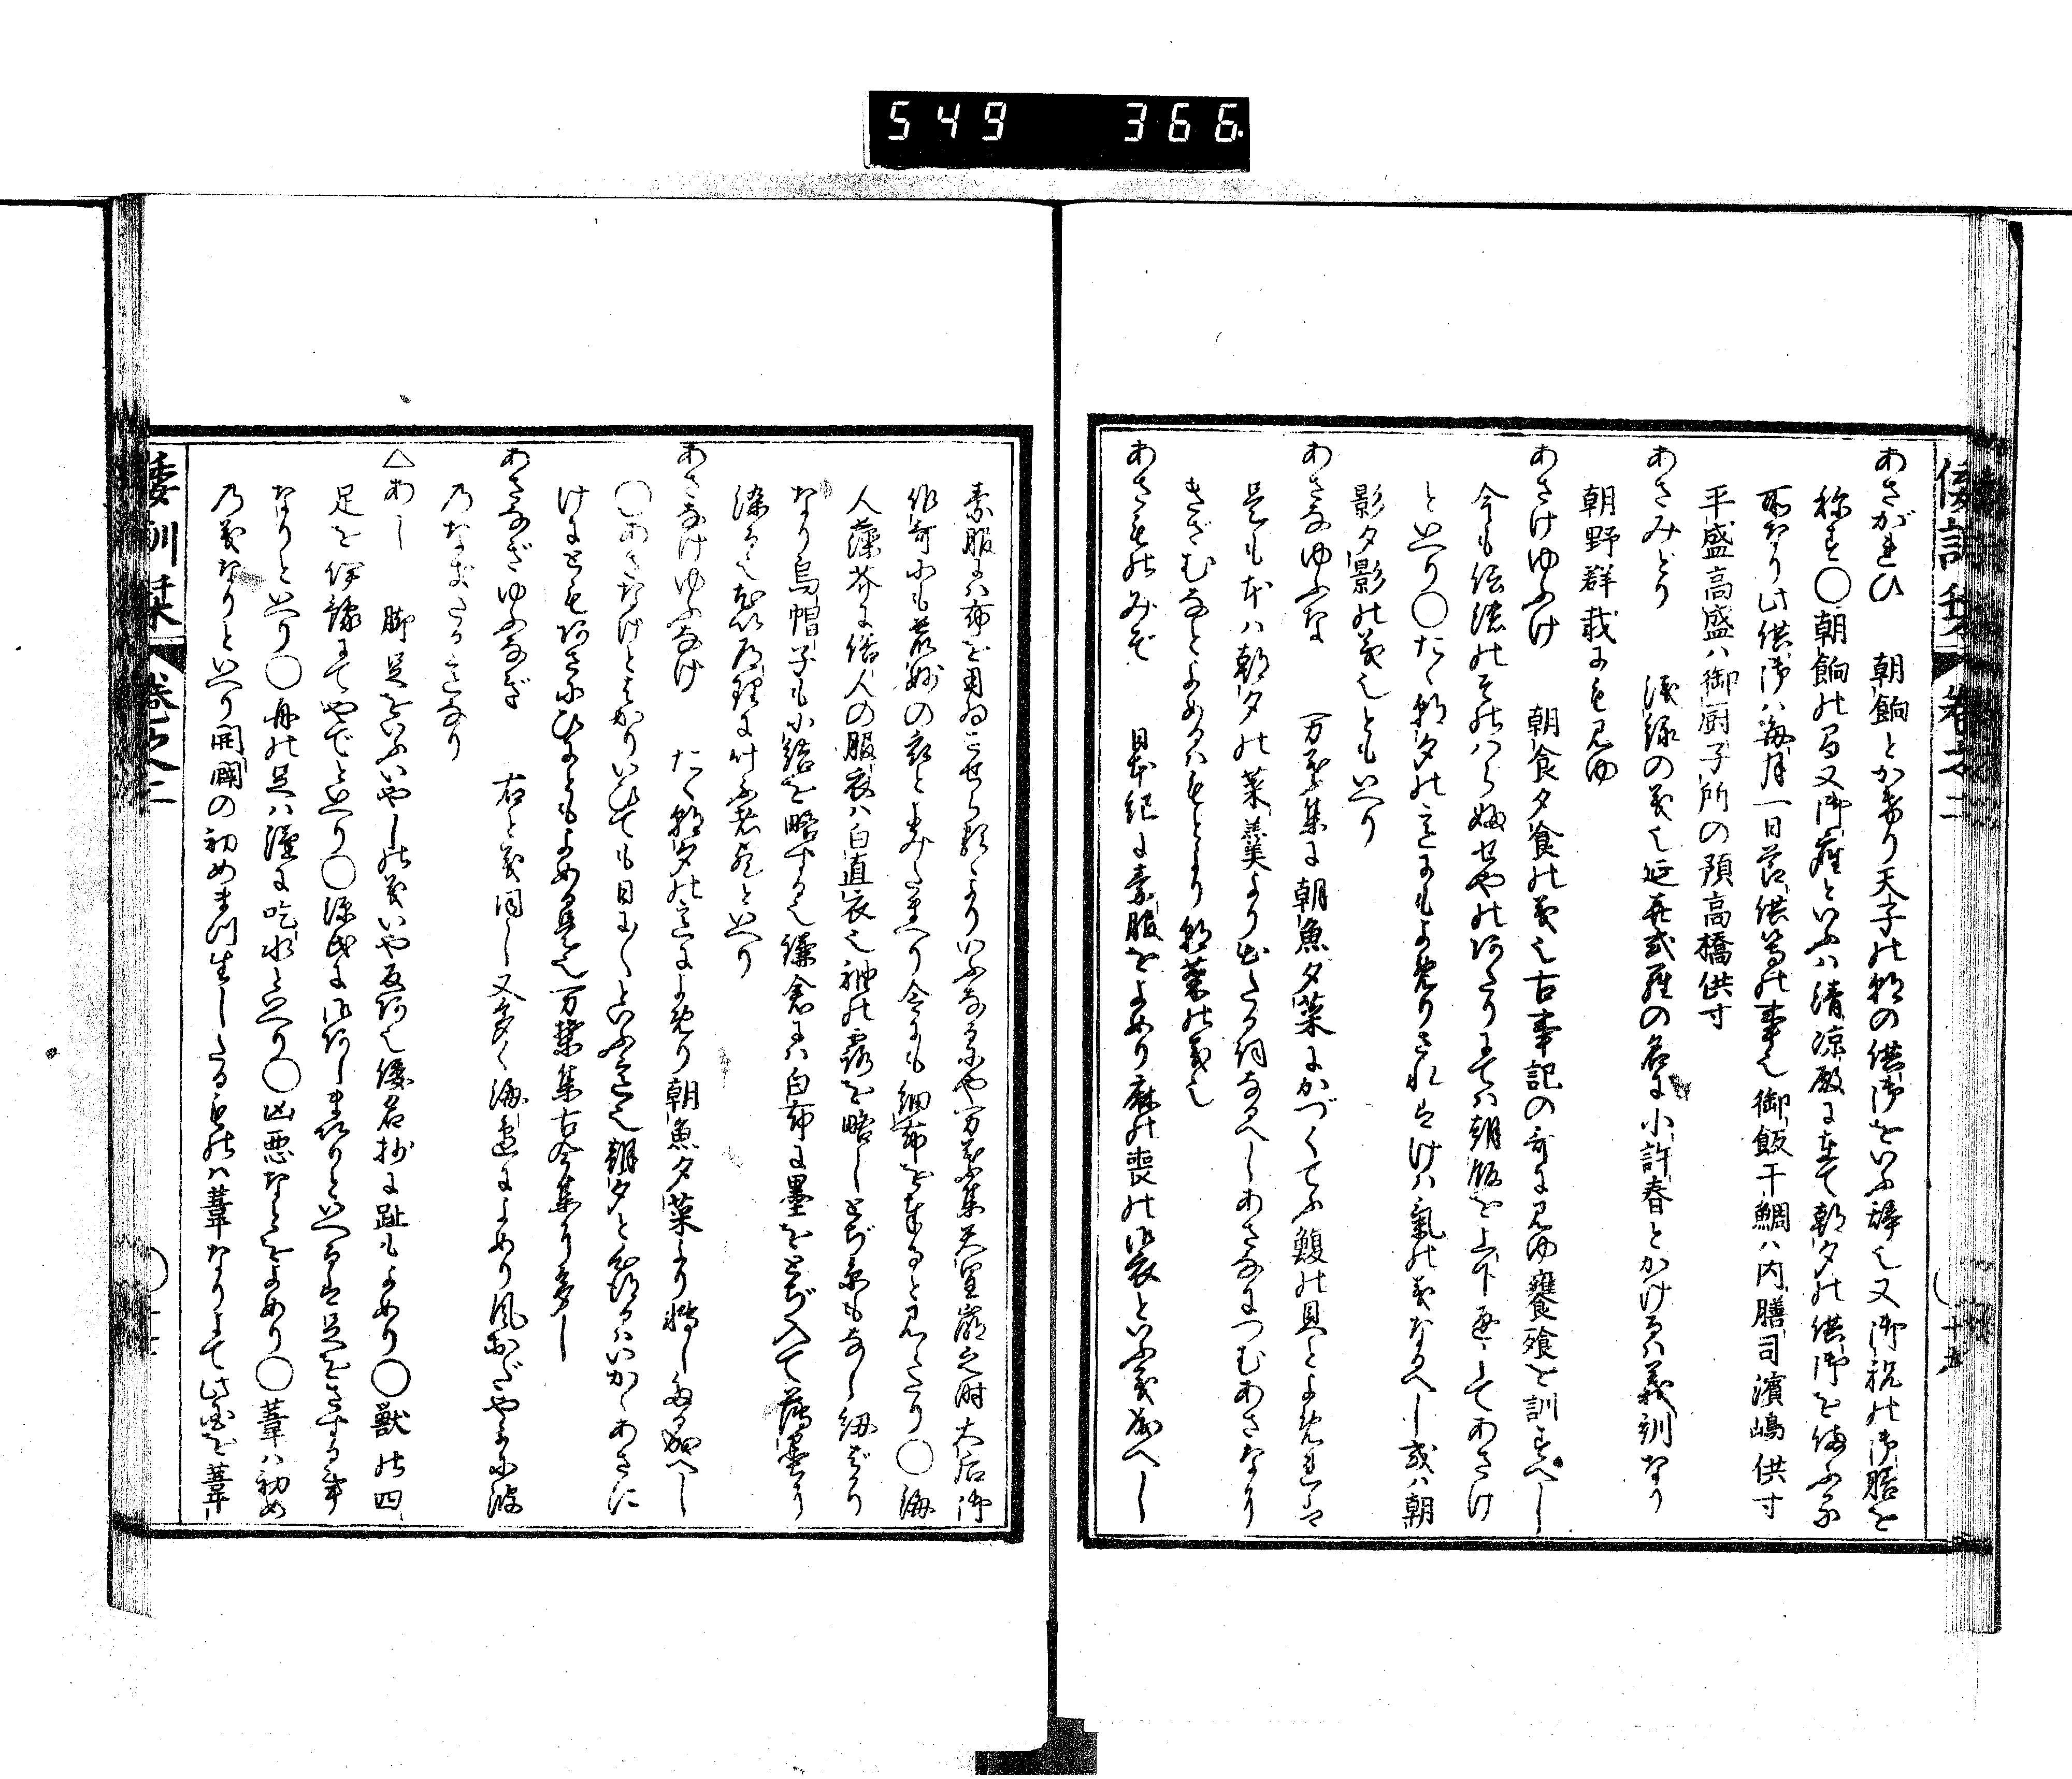 549 366
倭訓栞 巻之二
あさがれひ 朝餉とかけり天子の朝の供御をいふ辞也又御祝の御膳を
称す〇朝餉の間又御座といふハ清涼殿に在て朝夕の供御を備ふる
所なり此供御ハ毎月一日節供等の事也御飯干鯛ハ内膳司濱嶋供す
平盛高盛ハ御厨子所の預高橋供す
あさみとり 浅緑の義也延喜式雍の名に小許春とかけるハ義訓なり
朝野群載にも見ゆ
あさけゆふけ 朝食夕食の義也古事記の哥に見ゆ饔飧を訓すへし
今も伝法のそのハら婦せやのあたりにてハ朝飯を上下通してあさけ
といへり〇たゝ朝夕の意にもよめりされはけハ氣の義なるへし或ハ朝
影夕影の義也ともいへり
あさなゆふな 万葉集に朝魚夕菜にかづくてふ鰒の貝とよめれは
是も本ハ朝夕の菜羹より出たる詞なるへしあさなにつむあさなり
きざむなとよめるハもとより朝菜の義也
あさものみぞ 日本紀に素服をよめり麻の喪の御衣といふ義成へし
素服ハ布を用ゐこせち頚よりいふなるにや万葉集天皇崩之時大后御
作哥にも荒妙の衣とよみたまへり今にも細布を奉ると見えたり〇海
人藻芥に俗人の服衣ハ白直衣也袖の露を略しとぢ糸もなし紐ばかり
なり烏帽子も小結を略する也鎌倉にハ白布に墨をとぢ入て薄墨に
染る也
あさなけゆふなけ たゝ朝夕の意によめり朝魚夕菜より轉したる如へし
〇あさなけとはかりいひても日にゝといふ意也朝夕と
けにともあさにひにともよめる是也万葉集古今集に多し
あさなぎゆふなぎ 右と義同し又多く海邊によめり風おだやかに波
のなきたる意なり
△あし 脚足をいふいやしの義いや反あ也倭名抄に趾もよめり〇獣の四
足を伊豫にてやでといへり〇源氏に御あしまゐりといへるは足をさする事
なりといへり〇舟の足ハ漢に吃水といへり〇凶悪なとをよめり〇葦ハ初め
の義なりといへり開闢の初めまつ生したるものハ葦なりよて此国を葦
倭訓栞 巻之二